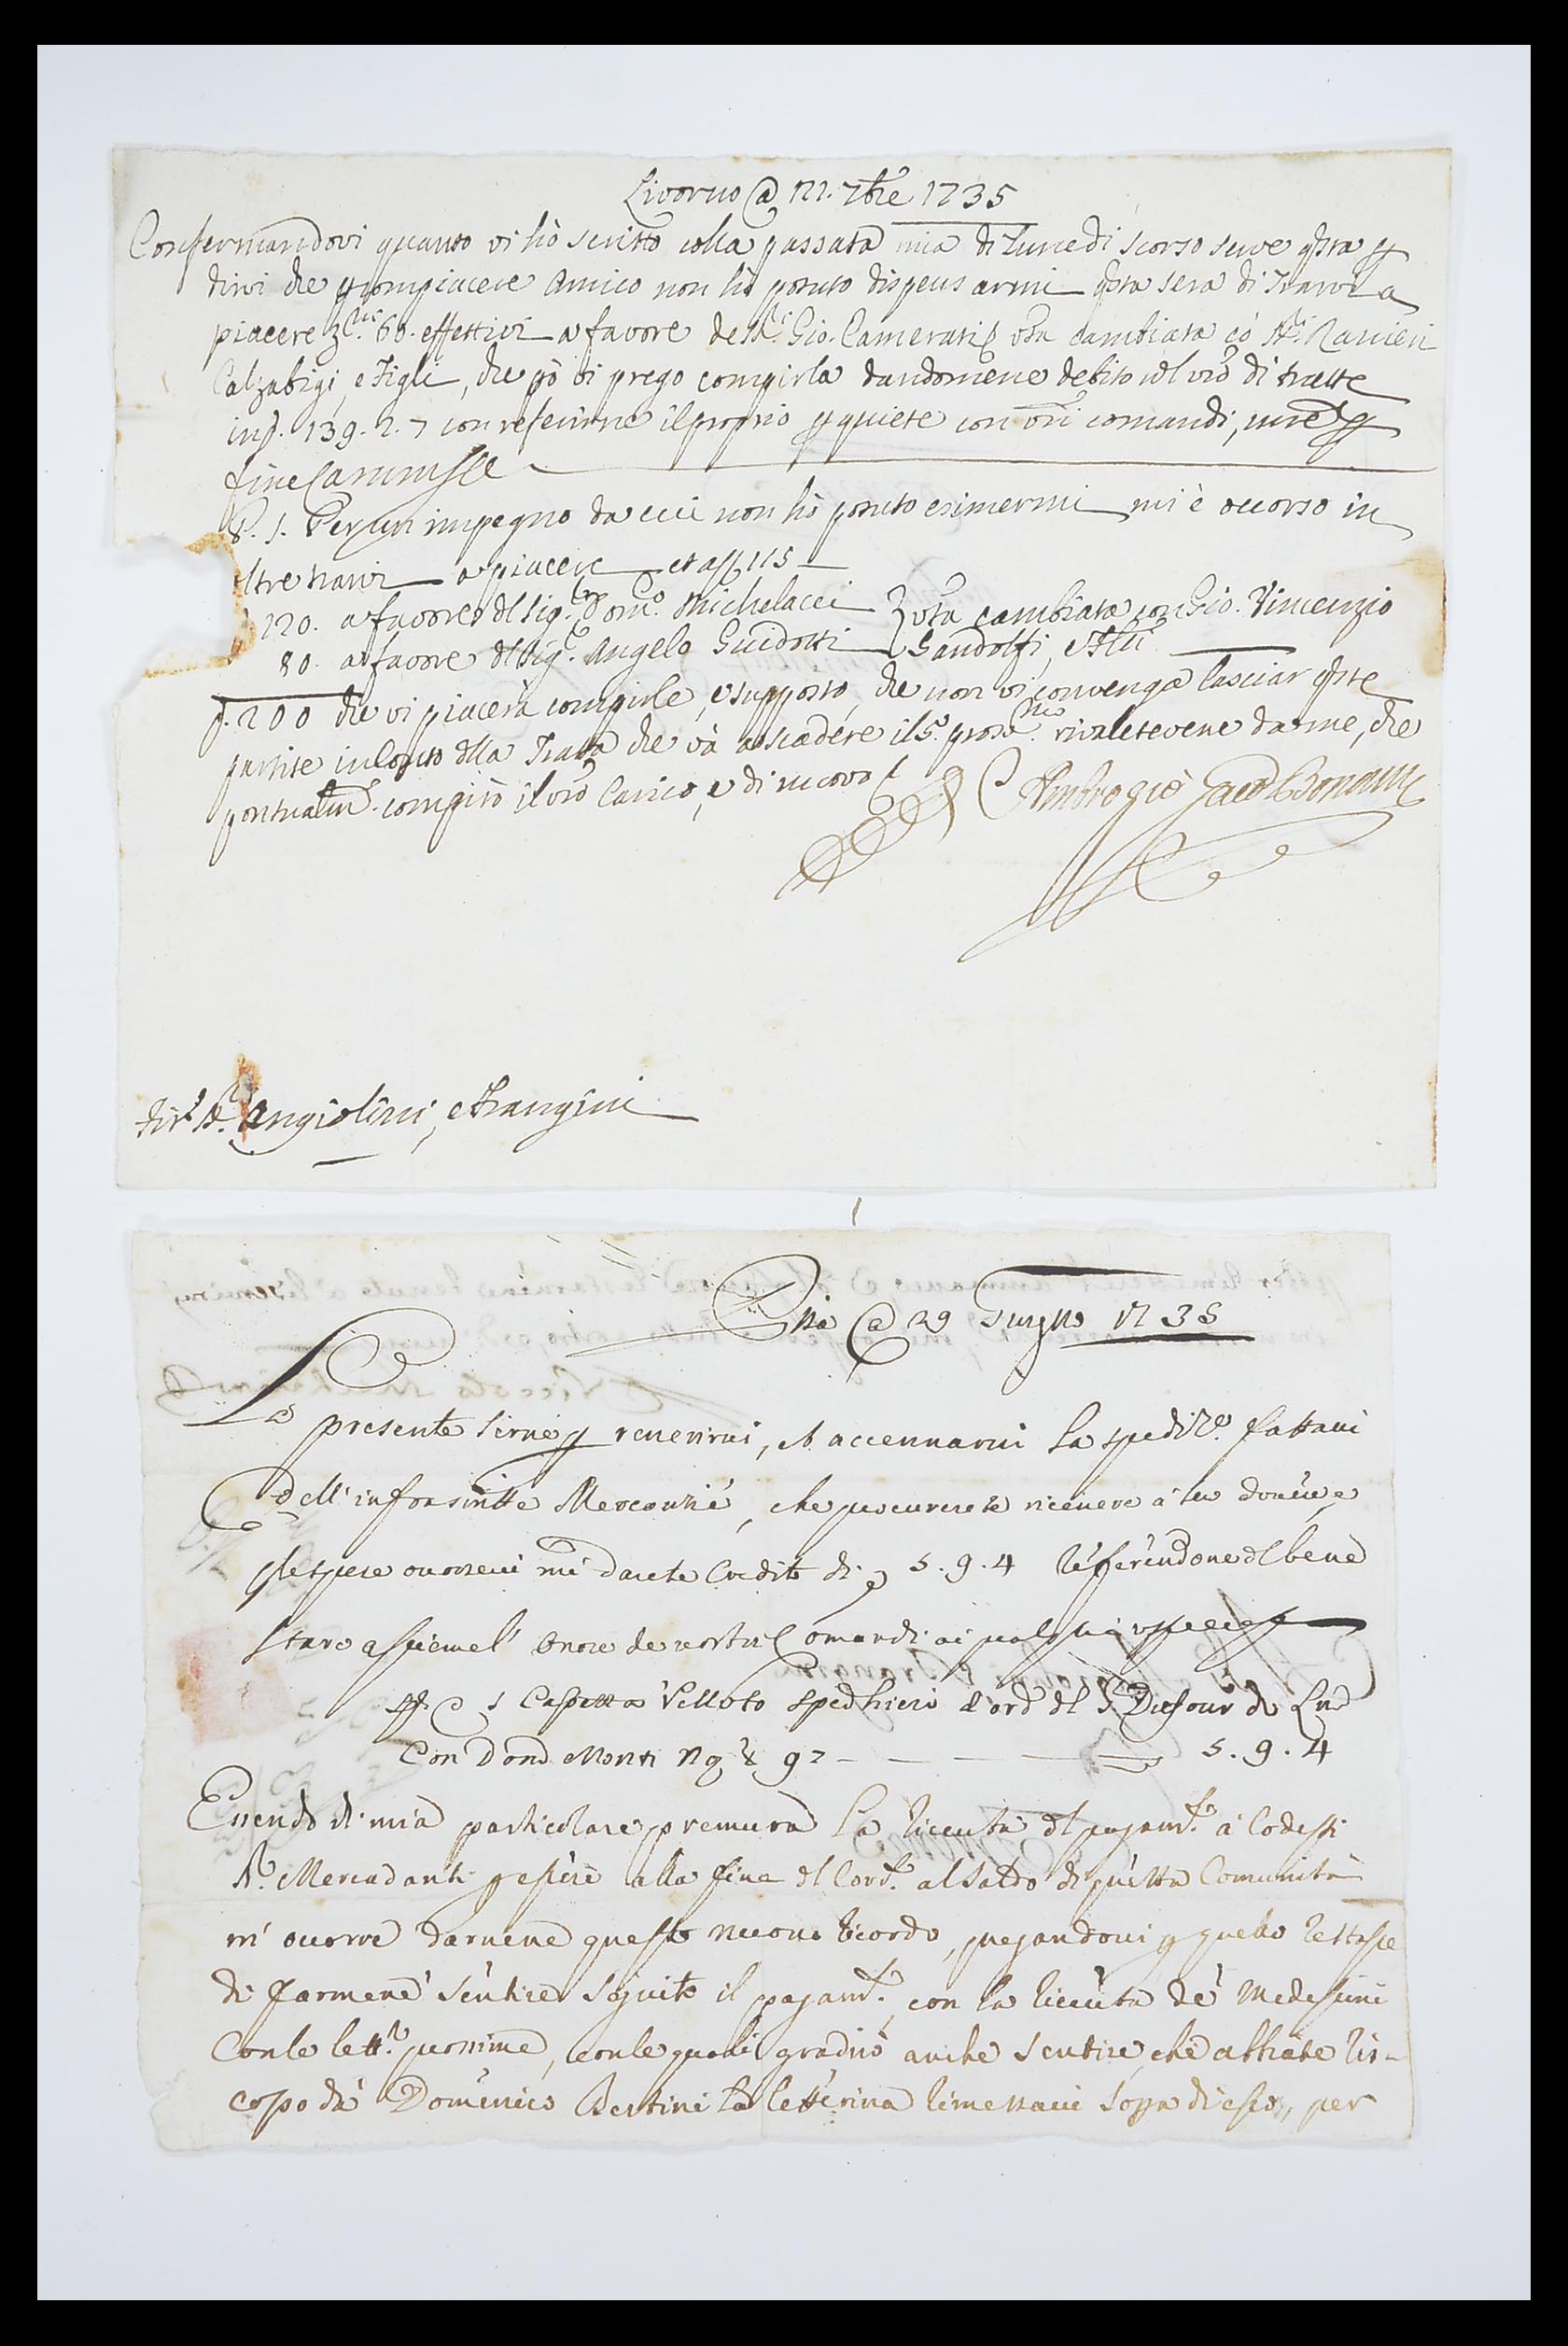 Livorno @ 7bre 1735
Confermandovi quanto vi hò scritto colla passata mia di Lunedi scorso serve qsta p
dirvi che p compiacere Amico non hò potuto dispensarmi qsta sera di Trarvi a
piacere 60. effettivi a favore de Sri. Gio. Camerati vta cambiata cò Sri. Ranieri
Calzabigi, e Figli, che pò vi prego compirla dandomene debito di tratte
in 139. 2. 7 con referirne il proprio p quiete con vri comandi, mre p
fine
P. S. Per un impegno da cui non hò potuto esimermi mi è occorso in
ltre trarvi a piacere 115
120. a favore dl Sig.re Domo. Michelacci vta cambiata con Gio. Vincenzio
80. a favore dl Sig.re Angelo Guidotti Gandolfi, e Altri
p. 200 che vi piacerà compirle, e supposto, che non vi convenga lasciar qste
partite in conto dlla Tratta che và a scadere il 5. prossmo rivaletevene da me, che
pontualmte. compirò il vro Carico, e di nuovo
Ambrogio
Sri. Angiolini, e Frangini
Pisa @ 29 Giugno 1735
La
presente serve p reverirvi, et accennarvi la spedize. fattavi
dell'infrascritte Mercanzie, che procurerete ricevere à suo dovere, e
p le spese occorsevi mi darete Credito di 5. 9. 4 referendone dl bene
stare assieme l'onore de vostri Comandi
1 Cassetta Velluto d'ord dl S. Dufour di
Con Dond Monti 92 - - - 5. 9. 4
Essendo di mia particolare premura la ricevuta dl pagamto. à Codesti
Sri. Mercadanti p essere alla fine dl Corrte. al saldo di questa Comunità
m'occorre darvene questo nuovo ricordo, pregandovi p quello restasse
di farmene sentire seguito il pagamto. con la ricevuta de Medesimi
Con le lettre prossime, con le quali gradirò anche sentire, che abbiate ris-
cosso da Domenico Bertini la letterina rimessavi sopra di esso, per